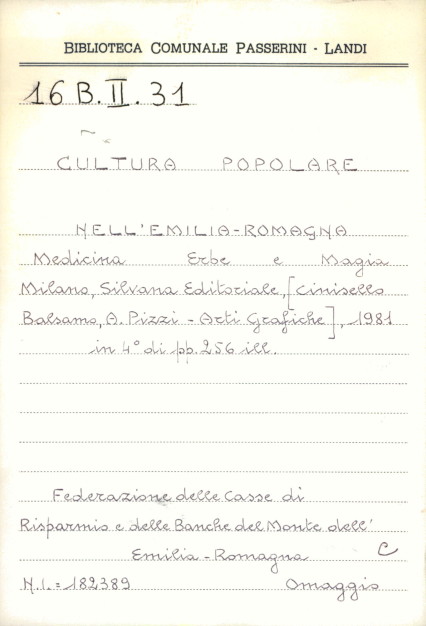 BIBLIOTECA COMUNALE PASSERINI - LANDI
16 B. II. 31
CULTURA POPOLARE
NELL'EMILIA-ROMAGNA
Medicina Erbe e Magia
Milano, Silvana Editoriale, [Cinisello
Balsamo, A. Pizzi - Arti Grafiche], 1981
in 4° di pp. 256 ill.
Federazione delle Casse di
Risparmio e delle Banche del Monte dell'
Emilia-Romagna C
N.I. = 182389 Omaggio